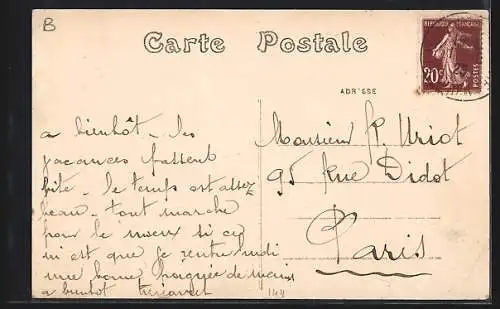 B
Carte Postale
REPUBLIQUE FRANÇAISE
20c
POSTES
ADRESSE
a bientôt - les
vacances passent
vite - le temps est assez
beau - tout marche
pour le mieux si ce
n'est que je rentre mardi
une bonne poignée de mains
a bientot
Monsieur P. Uriot
95 Rue Didot
Paris
144